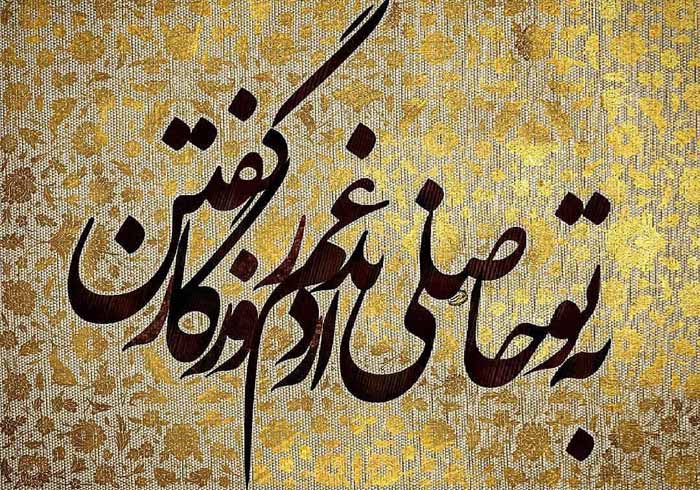 به تو حاصلی ندارد غم روزگار گفتن